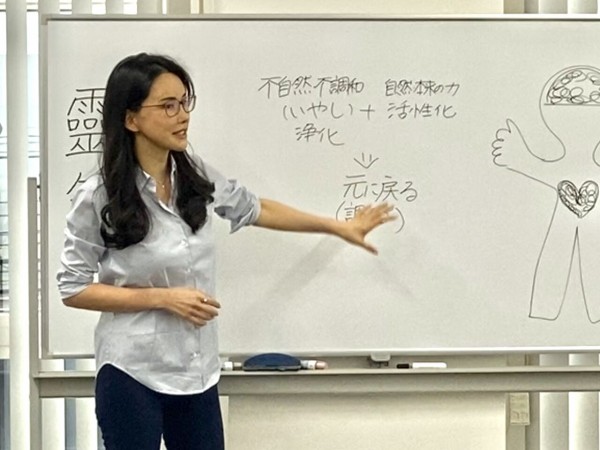 靈
不自然・不調和 自然本来の力
(いやし) + 活性化
浄化
元に戻る